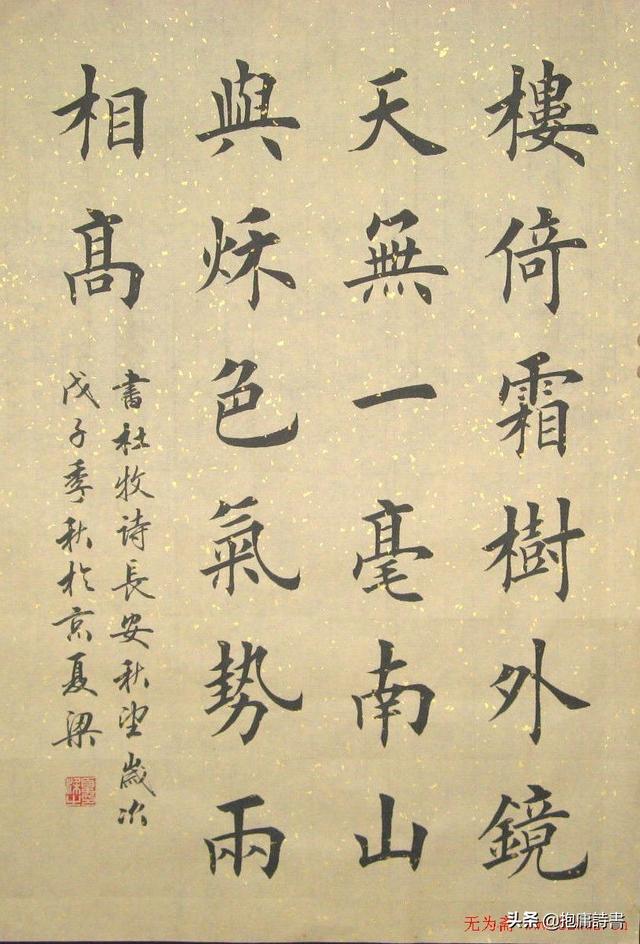 樓倚霜樹外鏡
天無一毫南山
與秌色氣勢兩
相髙
書杜牧诗長安秋望歲次
戊子季秋於京夏梁
无为斋
头条 @抱庸詩書